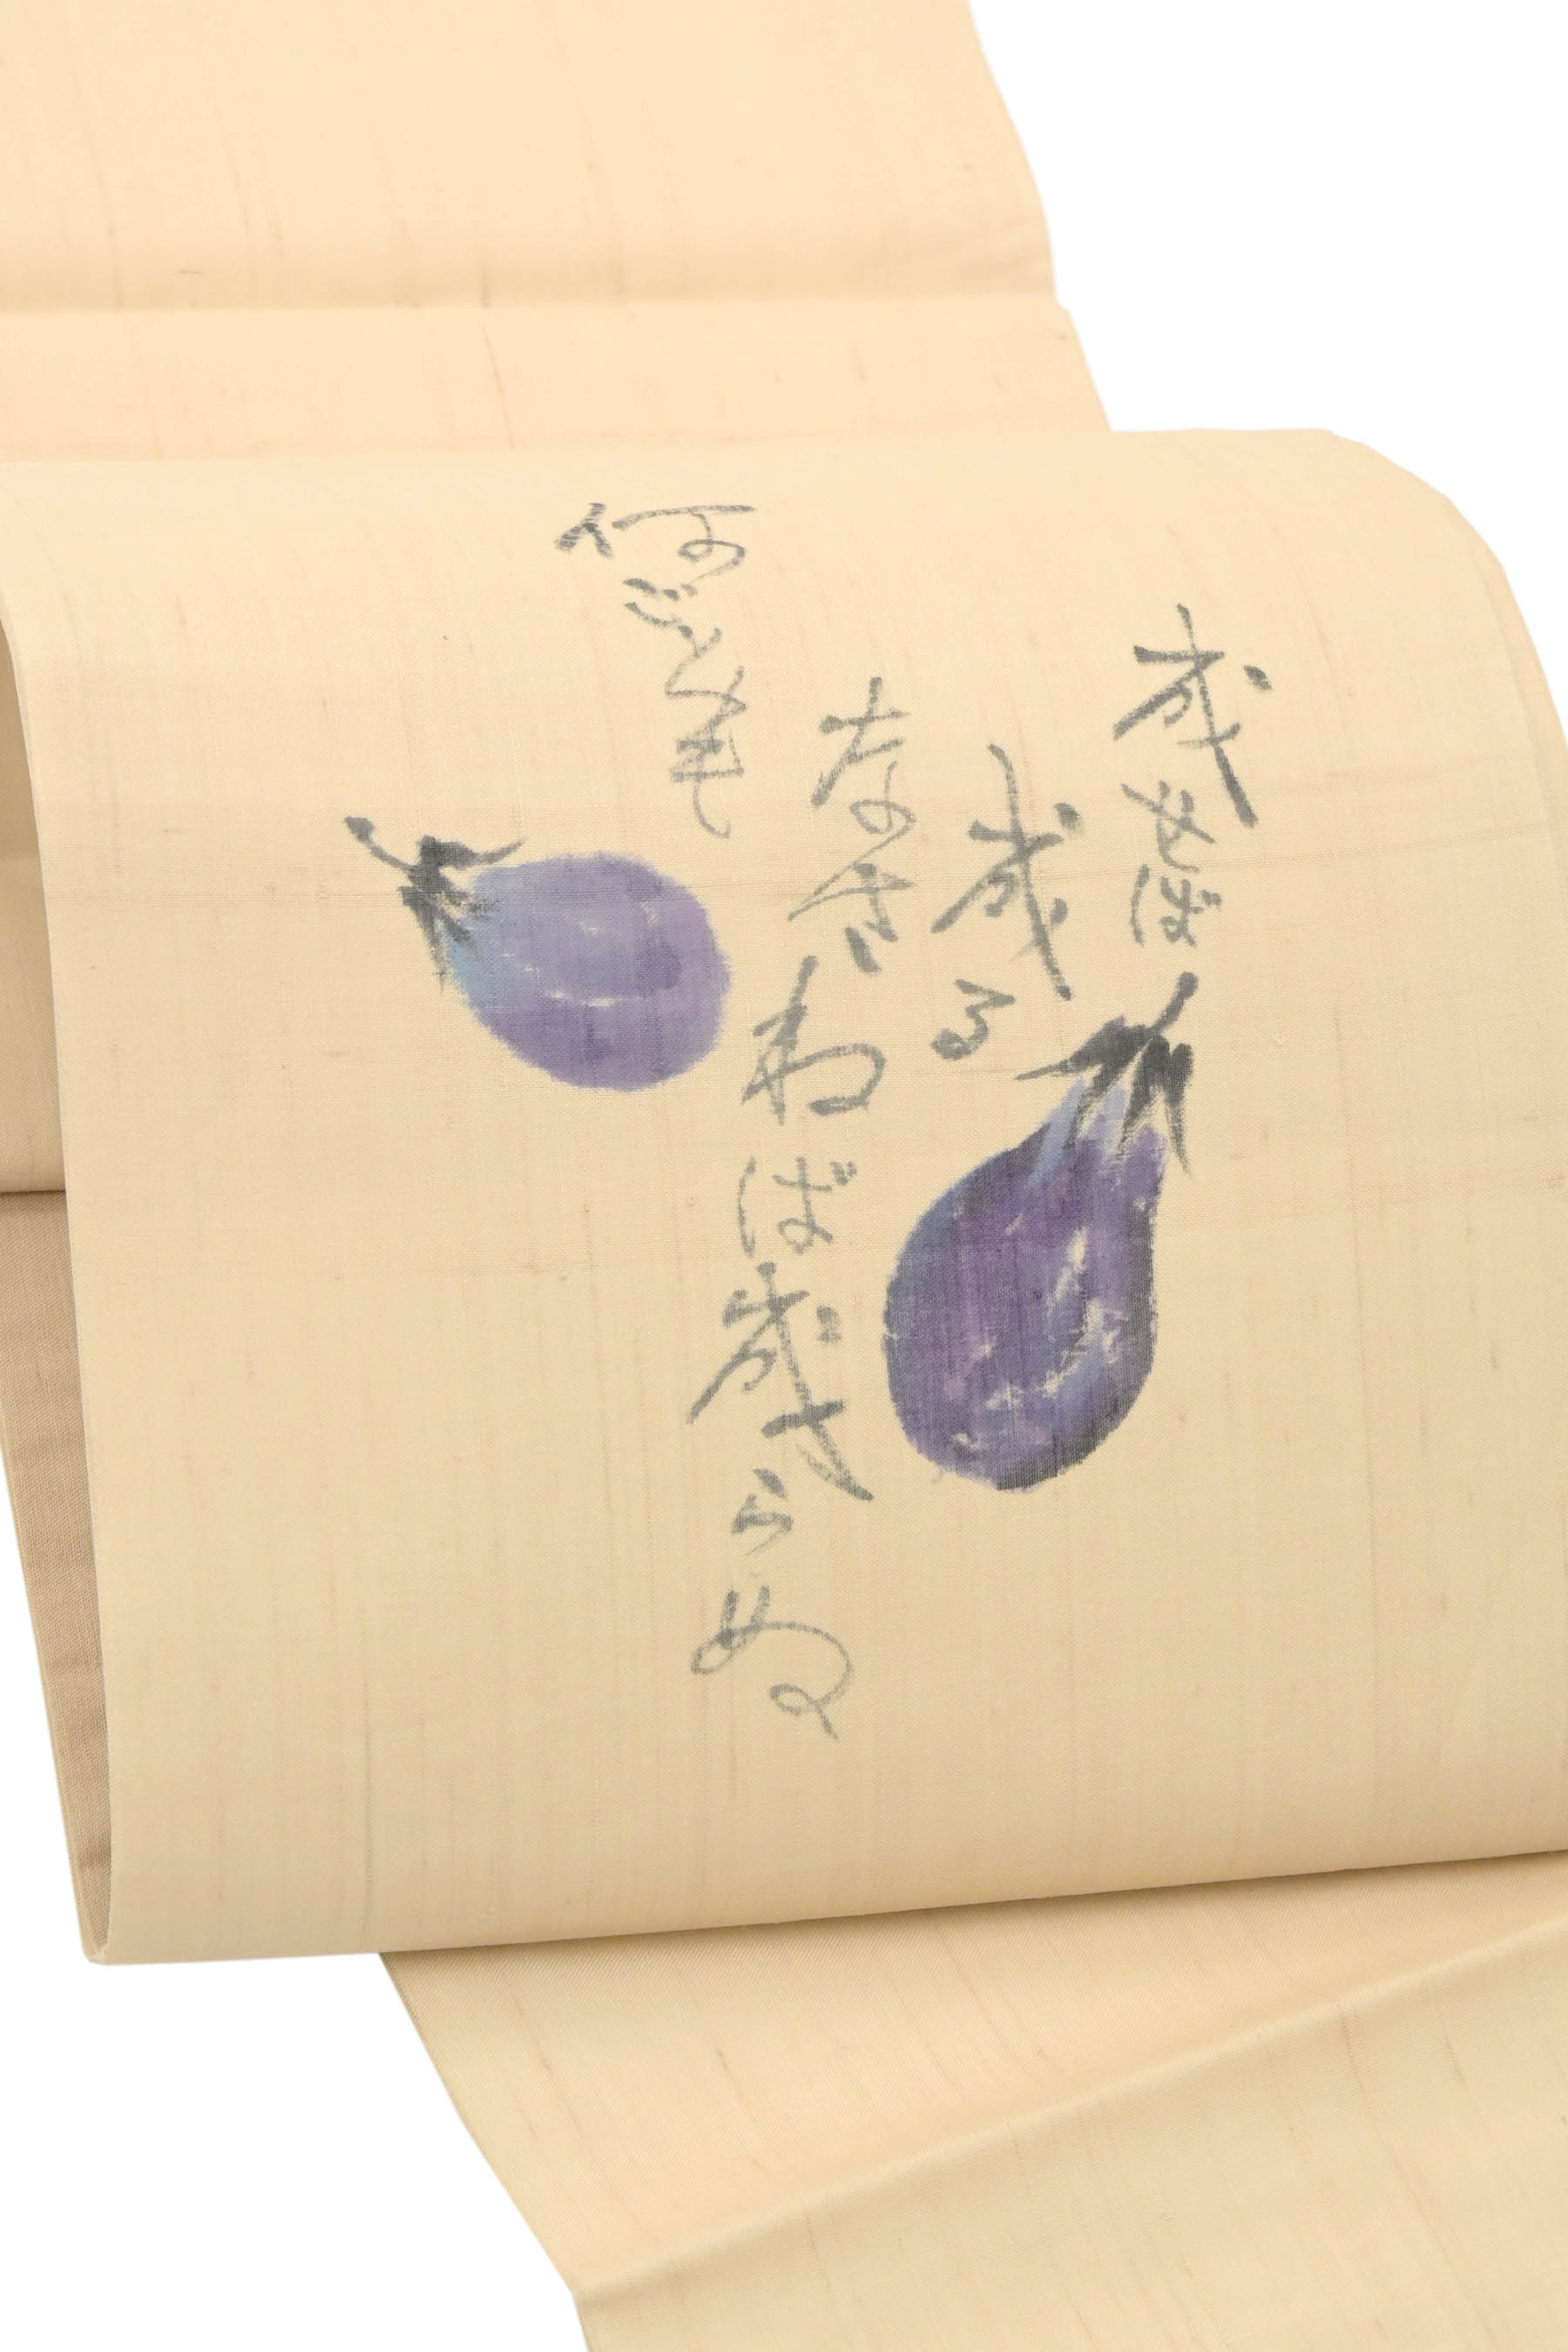 成せば
成る
なさねば成らぬ
何ごとも